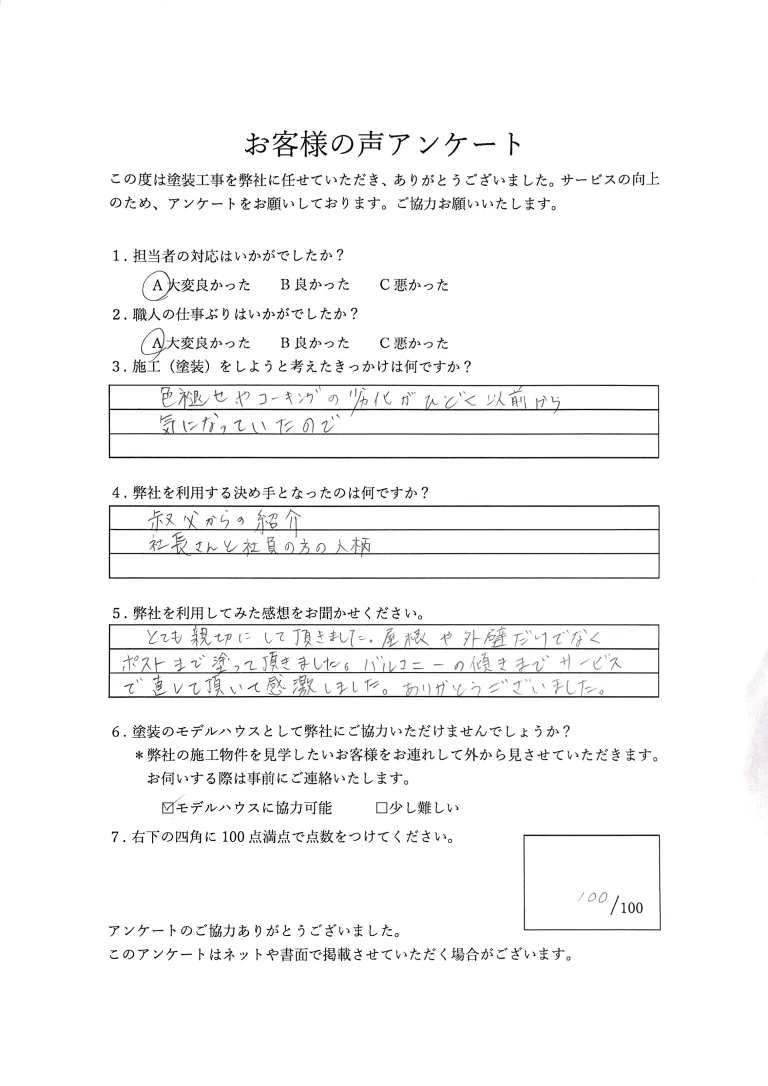 お客様の声アンケート
この度は塗装工事を弊社に任せていただき、ありがとうございました。サービスの向上
のため、アンケートをお願いしております。ご協力お願いいたします。
1．担当者の対応はいかがでしたか？
A 大変良かった B 良かった C 悪かった
2．職人の仕事ぶりはいかがでしたか？
A 大変良かった B 良かった C 悪かった
3．施工（塗装）をしようと考えたきっかけは何ですか？
色褪せやコーキングの劣化がひどく以前から
気になっていたので
4．弊社を利用する決め手となったのは何ですか？
叔父からの紹介
社長さんと社員の方の人柄
5．弊社を利用してみた感想をお聞かせください。
とても親切にして頂きました。屋根や外壁だけでなく
ポストまで塗って頂きました。バルコニーの傾きまでサービス
で直して頂いて感激しました。ありがとうございました。
6．塗装のモデルハウスとして弊社にご協力いただけませんでしょうか？
＊弊社の施工物件を見学したいお客様をお連れして外から見させていただきます。
お伺いする際は事前にご連絡いたします。
☑モデルハウスに協力可能 □少し難しい
7．右下の四角に 100 点満点で点数をつけてください。
100/100
アンケートのご協力ありがとうございました。
このアンケートはネットや書面で掲載させていただく場合がございます。